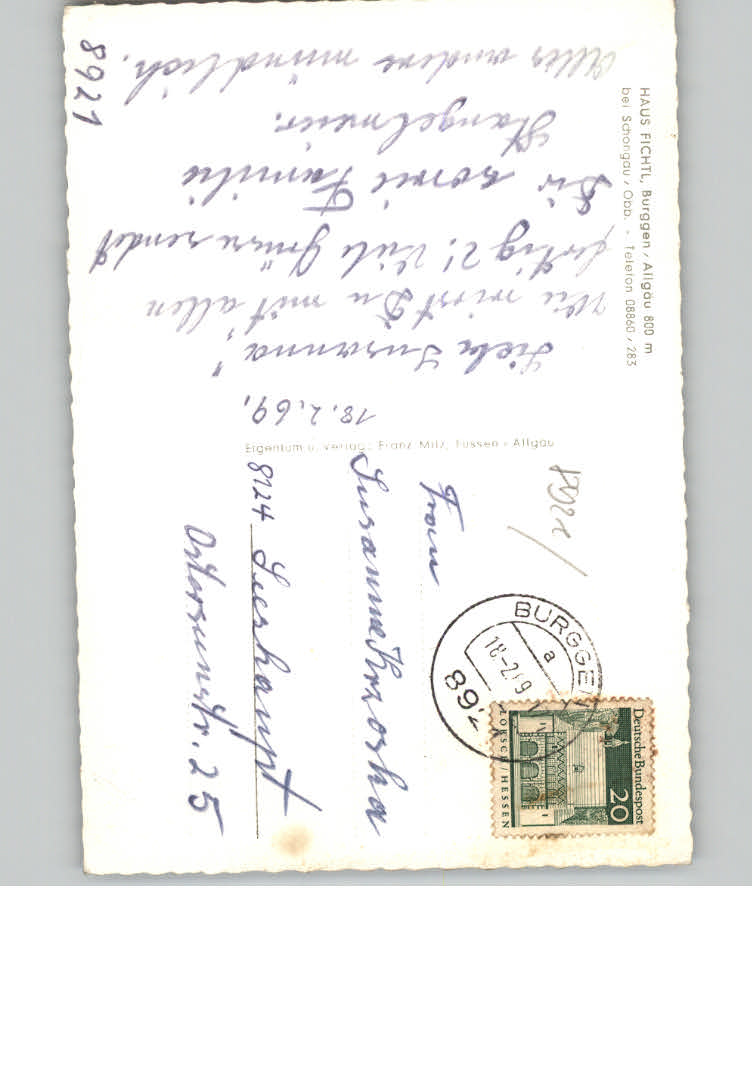 HAUS FICHTL, Burggen / Allgäu 800 m
bei Schongau / Obb. - Telefon 08860 / 283
18.2.69.
Liebe Susanna!
Wie wirst Du mit allen
fertig?! Viele Grüsse sendet
Dir sowie Familie
Stangelmeier.
Alles andere mündlich.
8921
Eigentum u. Verlag: Franz Milz, Füssen / Allgäu
8921
BURGGEN
a
18.-2.69
892
Deutsche Bundespost
20
LORSCH / HESSEN
Frau
Susanne
8124 Seeshaupt
25